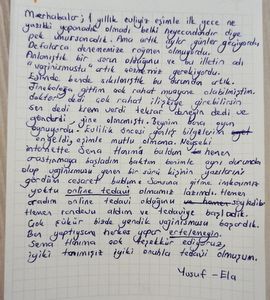 Merhabalar; 1 yıllık evliyiz eşimle ilk gece ne
yazıkki yapamadık olmadı belki heyecandandır diye
pek umursamadık. Ama artık aylar günler geçiyordu
Defalarca denememize rağmen olmuyordu.
Anlamıştık bir sorun olduğunu ve bu illetin adı
"vaginismustu" artık yenmemiz gerekiyordu.
Eşimde bende sıkılmıştık bu durumda artık.
Jinekoloğa gittim çok rahat muayene olabilmiştim.
doktorda dedi çok rahat ilişkiye girebilirsin
sen dedi krem verdi tekrar deneyin dedi ve
gönderdi yine olmamıştı. Beynim bana oyun
oynuyordu. Evlilik öncesi yanlış bilgilerim
engeldi eşimle mutlu olmama. Neyseki
internette Sena Hanım'ı buldum hemen
araştırmaya başladım baktım benimle aynı durumda
olup vaginismusu yenen bir sürü kişinin yazılarını
gördüm cesaret buldum. Sonuna gitme imkanımız
yoktu online tedavi olmamız lazımdı. Hemen
aradım online tedavi olduğunu söyledi
Hemen randevu aldım ve tedaviye başladık.
Çok şükür bizde yendik vaginismusu başardık.
Ben yaptıysam herkes yapar ertelemeyin.
Sena Hanıma çok teşekkür ediyoruz,
iyiki tanımışız iyiki onunla tedavi olmuşum.
Yusuf - Ela